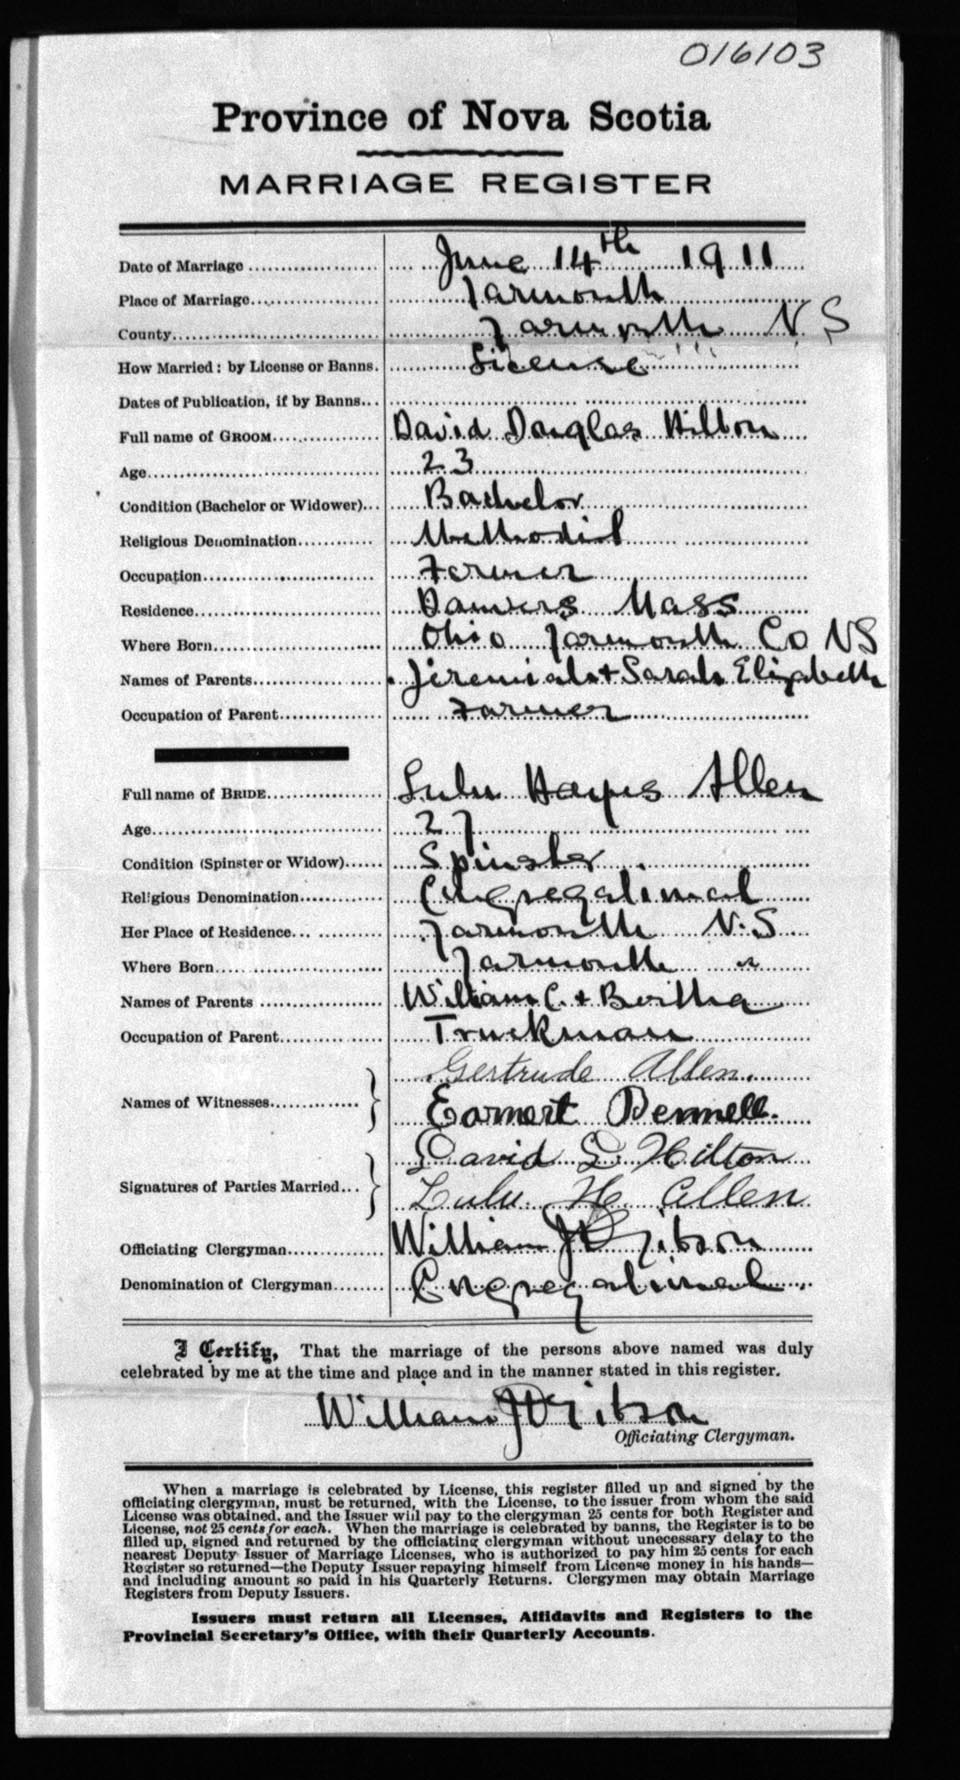 016103
Province of Nova Scotia
MARRIAGE REGISTER
Date of Marriage ........ June 14th 1911
Place of Marriage........ Yarmouth
County........ Yarmouth N S
How Married: by License or Banns. License
Dates of Publication, if by Banns...
Full name of GROOM........ David Douglas Hilton
Age........ 23
Condition (Bachelor or Widower)... Bachelor
Religious Denomination........ Methodist
Occupation........ Farmer
Residence........ Danvers Mass
Where Born........ Ohio Yarmouth Co NS
Names of Parents........ Jeremiah + Sarah Elizabeth
Occupation of Parent........ Farmer
Full name of BRIDE........ Lulu Hayes Allen
Age........ 27
Condition (Spinster or Widow)...... Spinster
Religious Denomination........ Congregational
Her Place of Residence... Yarmouth N.S
Where Born........ Yarmouth "
Names of Parents ........ William C. + Bertha
Occupation of Parent........ Truckman
Gertrude Allen.
Names of Witnesses........ } Bennell.
David D Hilton
Signatures of Parties Married... }
Lulu H Allen
Officiating Clergyman........ William J D Gibson
Denomination of Clergyman........ Congregational
I Certify, That the marriage of the persons above named was duly
celebrated by me at the time and place and in the manner stated in this register.
William J D Gibson
Officiating Clergyman.
When a marriage is celebrated by License, this register filled up and signed by the
officiating clergyman, must be returned, with the License, to the issuer from whom the said
License was obtained, and the Issuer will pay to the clergyman 25 cents for both Register and
License, not 25 cents for each. When the marriage is celebrated by banns, the Register is to be
filled up, signed and returned by the officiating clergyman without unecessary delay to the
nearest Deputy Issuer of Marriage Licenses, who is authorized to pay him 25 cents for each
Register so returned—the Deputy Issuer repaying himself from License money in his hands—
and including amount so paid in his Quarterly Returns. Clergymen may obtain Marriage
Registers from Deputy Issuers.
Issuers must return all Licenses, Affidavits and Registers to the
Provincial Secretary's Office, with their Quarterly Accounts.